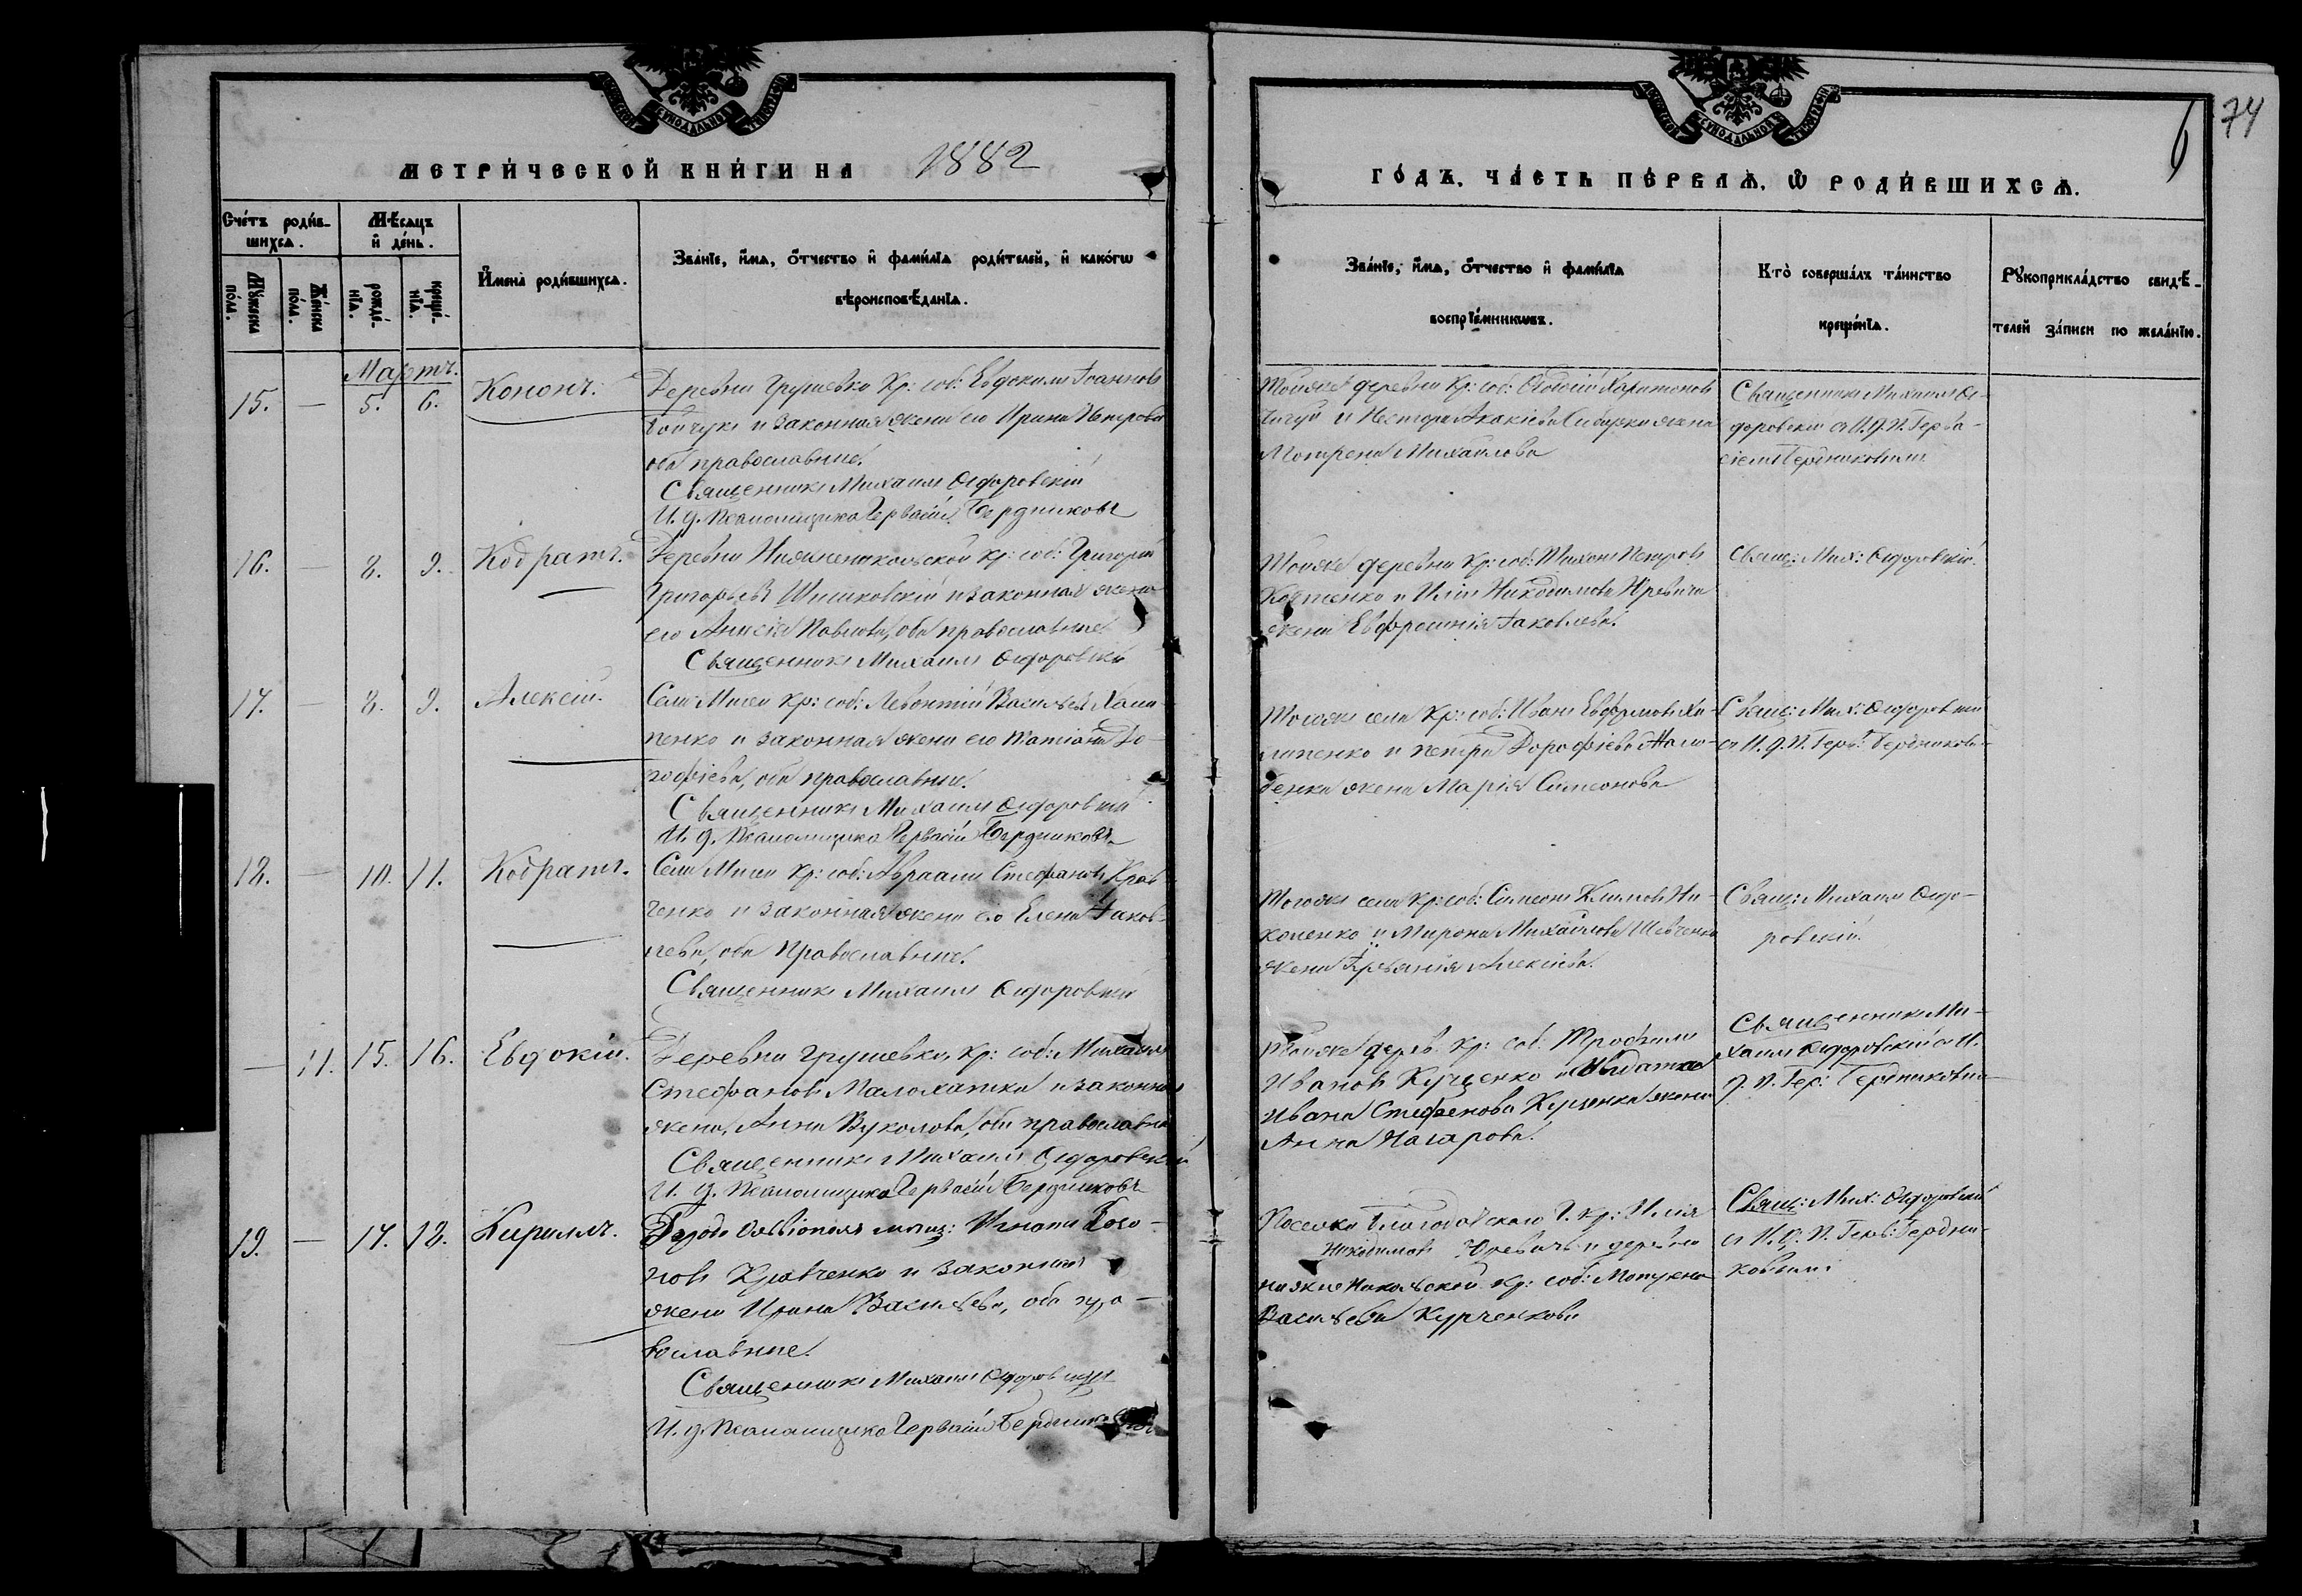 74
6
МЕТРИ́ЧЕСКОЙ КНИ́ГИ НА 1882
ГО́ДЪ, ЧА́СТЬ ПЕ́РВАѦ, Ѡ РОДИ́ВШИХСѦ.
Сче́тъ роди́в-
шихсѧ.
Мѣ́сѧцъ
и̂ де́нь.
Мꙋ́жеска
по́ла.
Же́нска
по́ла.
рожде́-
нїѧ.
креще́-
нїѧ.
И̂мена̀ роди́вшихсѧ.
Зва́нїе, и̂́мѧ, ѻ̂́тчество и̂ фами́лїѧ роди́телей, и̂ како́гѡ
вѣроисповѣ́данїѧ.
Зва́нїе, и̂́мѧ, ѻ̂́тчество и̂ фами́лїѧ
воспрїе́мникѡвъ.
Кто̀ соверша́лъ та́инство
креще́нїѧ.
Рꙋкоприкла́дство свидѣ́-
телей за́писи по жела́нїю.
Мартъ.
15. — 5. 6. Кононъ.
Деревни Грушевки Кр: соб: Евдокимъ Іоанновъ
Бойчукъ и законная жена его Ирина Петрова
оба православные.
Священникъ Михаилъ Сидоровскій
И. д. Псаломщика Гервасій Бердниковъ
Тойже деревни Кр: соб: Харитоновъ
и Нестора Акакіева жена
Мотрена Михайлова
Священникъ Михаилъ Си-
доровскій съ И. Д. П. Герва-
сіемъ Бердниковымъ
16. — 8. 9. Кодратъ.
Деревни Нижнениколь­ской Кр: соб: Григорій
Григорьевъ Шишковскій и законная жена
его Анисія Павлова, оба православные.
Священникъ Михаилъ Сидоровскій
Тойже деревни Кр: соб: Тихонъ Петровъ
и Иліи Никодимова Юревича
жена Евфросинія Іаковлева.
Свящ: Мих: Сидоровскій.
17. — 8. 9. Алексій.
Села Кр: соб: Левонтій Васильевъ Хали-
пенко и законная жена его Татіана До-
рофіева, оба православные.
Священникъ Михаилъ Сидоровскій
И. д. Псаломщика Гервасій Бердниковъ
Тогоже села Кр: соб: Иванъ Евфимовъ Ха-
липенко и Петра Дорофіева
жена Марія Симеонова
Свящ: Мих: Сидоровскій
съ И. Д. П. Герв: Бердниковы-
18. — 10. 11. Кодратъ.
Села Кр: соб: Авраамъ Стефановъ Крав-
ченко и законная жена его Елена Іаков-
лева, оба Православные.
Священникъ Михаилъ Сидоровскій
Тогоже села Кр: соб: Симеонъ Климовъ Ни-
коленко и Мирона Михайлова Шевченка
жена Алексіева.
Свящ: Михаилъ Сидо-
ровскій.
— 11. 15. 16. Евдокія.
Деревни Грушевки, Кр: соб: Михаилъ
Стефановъ Малохатка и законная
жена, Анна Вуколова, оба православные
Священникъ Михаилъ Сидоровскій
И. д. Псаломщика Гервасій Бердниковъ
Тойже дерев. Кр: соб: Трофимъ
Ивановъ Куценко и
Ивана Стефанова жена
Анна Назарова.
Священникъ Ми-
хаилъ Сидоровскій съ И.
Д. П. Гер: Бердниковы-
19. — 17. 18. Кириллъ.
Города мѣщ: Игнатій
новъ Кравченко и законная
жена Ирина Васильева, оба пра-
вославные.
Священникъ Михаилъ Сидоровскій
И. д. Псаломщика Гервасій Бердниковъ
Поселка Кр: Илія
Никодимовъ Юревичъ и деревни
Нижненикольской Кр: соб: Мотрена
Васильева Курченкова
Свящ: Мих: Сидоровскій
съ И. Д. П. Герв: Бердни-
ковымъ